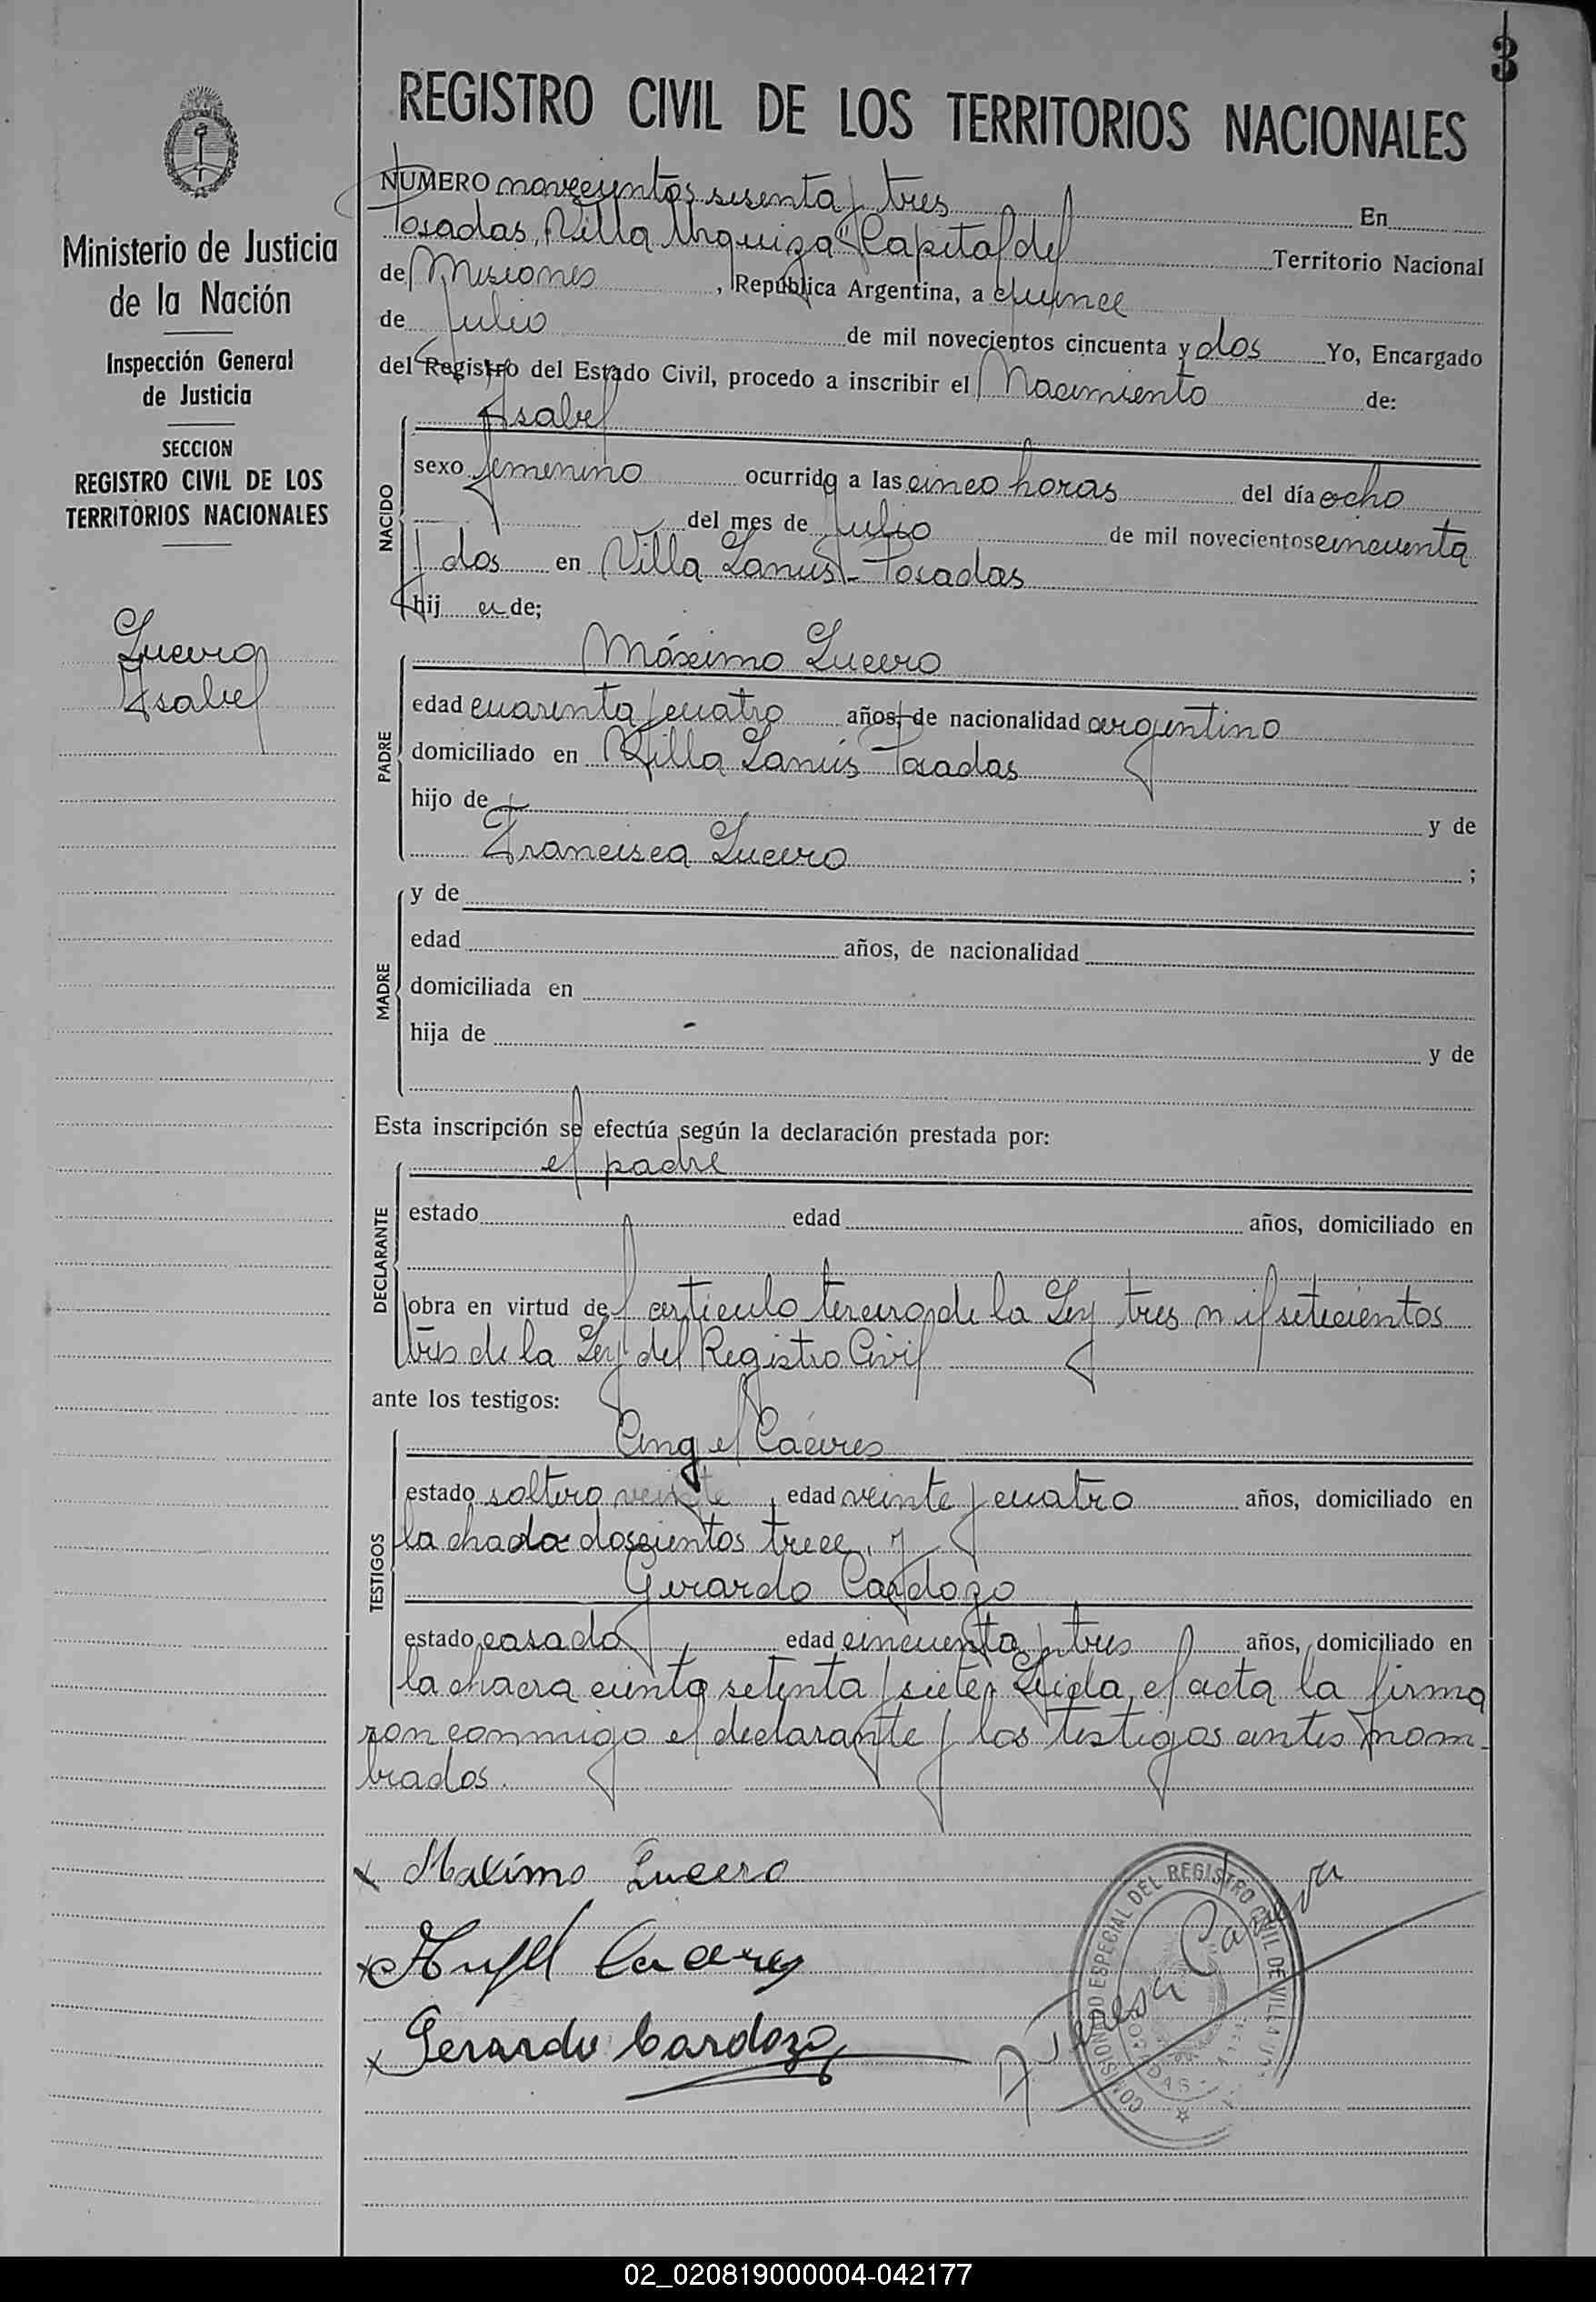 3
REGISTRO CIVIL DE LOS TERRITORIOS NACIONALES
Ministerio de Justicia
de la Nación
Inspección General
de Justicia
SECCION
REGISTRO CIVIL DE LOS
TERRITORIOS NACIONALES
Lucero
Isabel
NUMERO novecientos sesenta y tres En
Posadas, Villa Urquiza "Capital del Territorio Nacional
de Misiones, República Argentina, a quince
de Julio de mil novecientos cincuenta y dos Yo, Encargado
del Registro del Estado Civil, procedo a inscribir el Nacimiento de:
NACIDO
Isabel
sexo femenino ocurrido a las cinco horas del día ocho
del mes de Julio de mil novecientos cincuenta
y dos en Villa Lanús - Posadas
hij a de;
PADRE
Máximo Lucero
edad cuarenta y cuatro años, de nacionalidad argentino
domiciliado en Villa Lanús Posadas
hijo de y de
Francisca Lucero ;
MADRE
y de
edad años, de nacionalidad
domiciliada en
hija de y de
Esta inscripción se efectúa según la declaración prestada por:
DECLARANTE
el padre
estado edad años, domiciliado en
obra en virtud del artículo tercero de la Ley tres mil setecientos
tres de la Ley del Registro Civil
ante los testigos:
TESTIGOS
Angel Cáceres
estado soltero veinte, edad veinte y cuatro años, domiciliado en
la chada doscientos trece, y
Gerardo Cardozo
estado casado, edad cincuenta y tres años, domiciliado en
la chacra ciento setenta y siete. Leida el acta la firma
ron conmigo el declarante y los testigos antes nom-
brados.
x Maximo Lucero
x Angel Caceres
x Gerardo Cardozo
COMISIONADO ESPECIAL DEL REGISTRO CIVIL DE VILLA
02_020819000004-042177